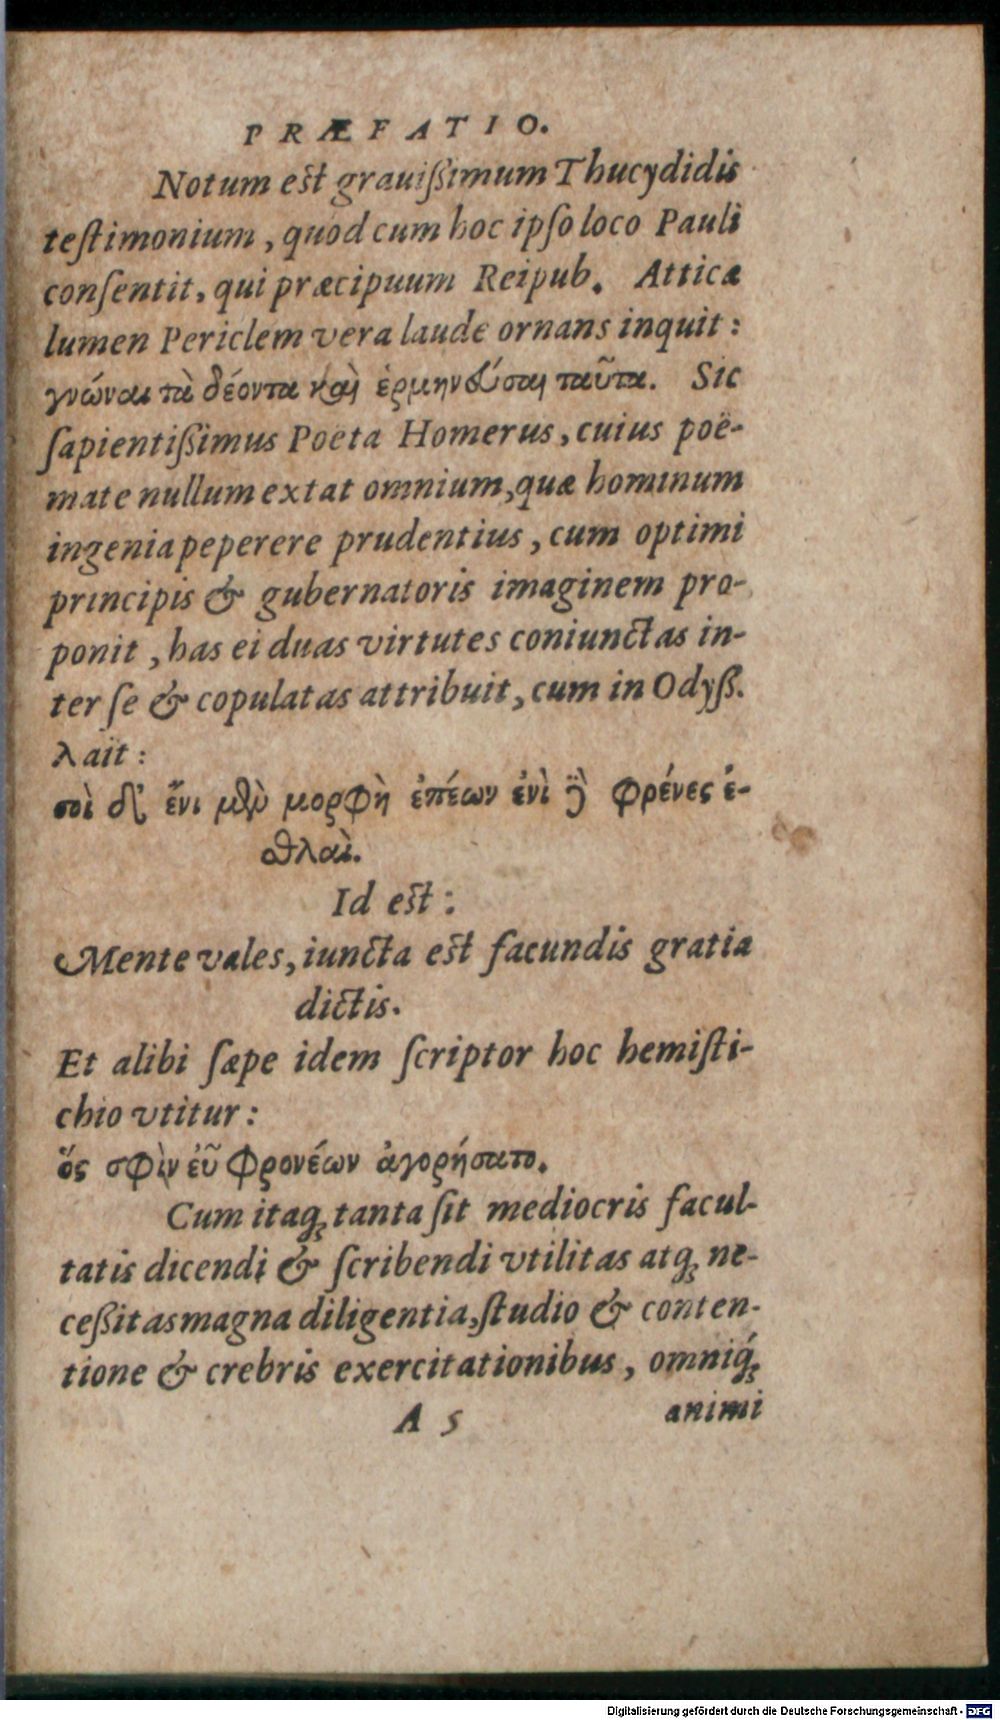 PRÆFATIO.
Notum est grauißimum Thucydidis
teſtimonium, quod cum hoc ipſo loco Pauli
conſentit, qui præcipuum Reipub. Atticæ
lumen Periclem vera laude ornans inquit:
γνῶναι τὰ δέοντα καὶ ἑρμηνεῦσαι ταῦτα. Sic
ſapientißimus Poëta Homerus, cuius poë-
mate nullum extat omnium, quæ hominum
ingenia peperere prudentius, cum optimi
principis & gubernatoris imaginem pro-
ponit, has ei duas virtutes coniunctas in-
ter ſe & copulatas attribuit, cum in Odyß.
λ ait:
σοὶ δ' ἔνι μὲν μορφὴ ἐπέων ἐνὶ δὲ φρένες ἐ-
σθλαὶ.
Id est:
Mente vales, iuncta est facundis gratia
dictis.
Et alibi ſæpe idem ſcriptor hoc hemiſti-
chio vtitur:
ὅς σφὶν εὖ φρονέων ἀγορήσατο.
Cum itaq; tanta ſit mediocris facul-
tatis dicendi & ſcribendi vtilitas atq; ne-
ceßitas magna diligentia, ſtudio & conten-
tione & crebris exercitationibus, omniq́;
A 5 animi
Digitalisierung gefördert durch die Deutsche Forschungsgemeinschaft - DFG